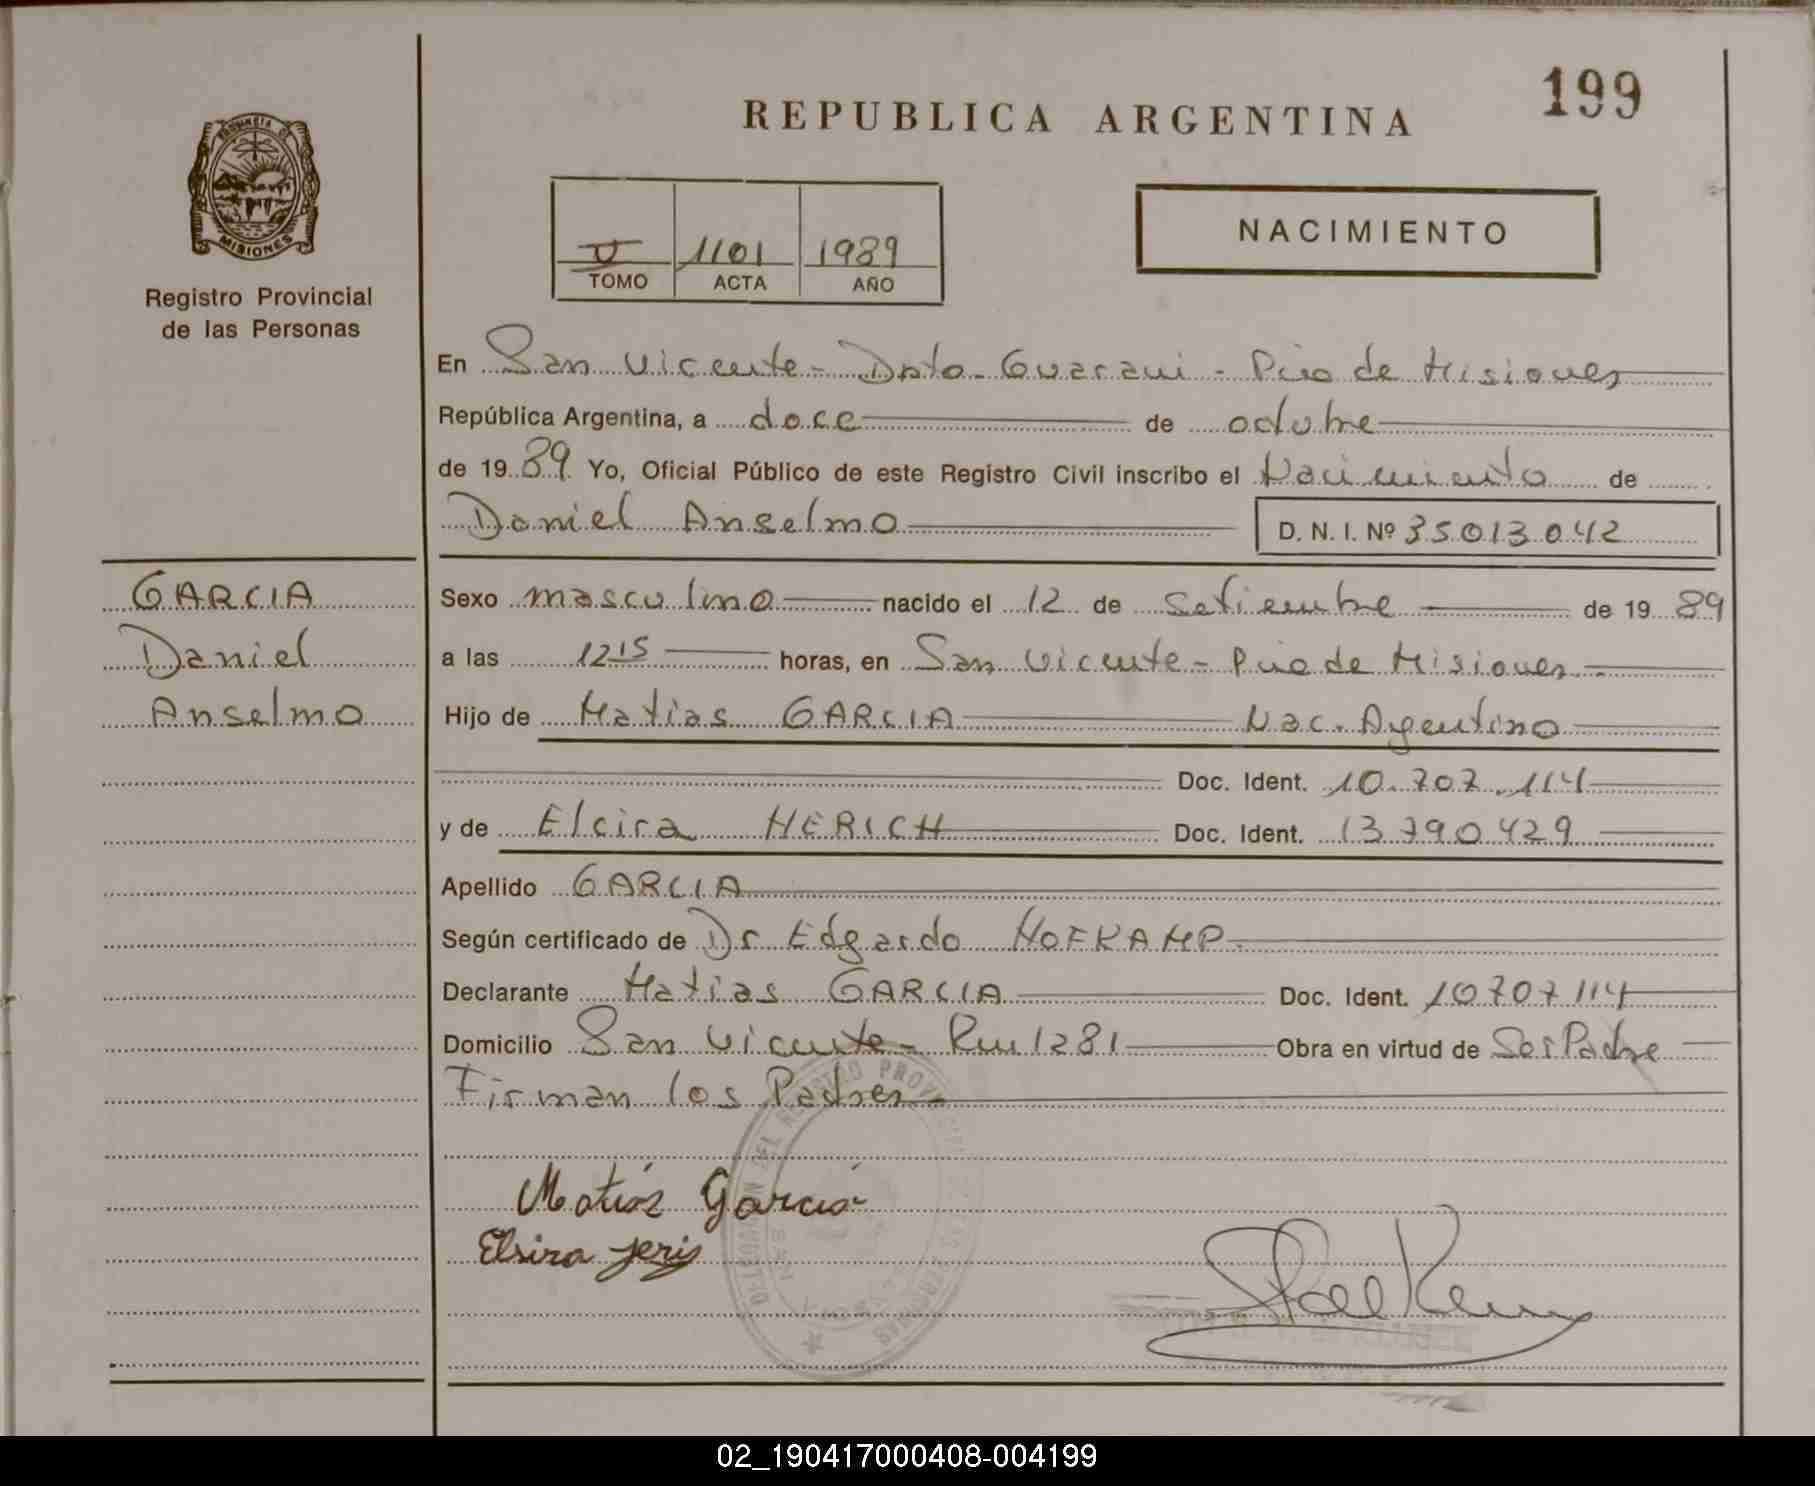 199
REPUBLICA ARGENTINA
PROVINCIA DE
MISIONES
Registro Provincial
de las Personas
V 1101 1989
TOMO ACTA AÑO
NACIMIENTO
En San Vicente - Dpto. Guarani - Pcia de Misiones
República Argentina, a doce de octubre
de 19 89 Yo, Oficial Público de este Registro Civil inscribo el Nacimiento de
Daniel Anselmo D. N. I. Nº 35013042
GARCIA
Daniel
Anselmo
Sexo masculino nacido el 12 de Setiembre de 19 89
a las 12 15 horas, en San Vicente - Pcia de Misiones
Hijo de Matias GARCIA Nac. Argentino
Doc. Ident. 10.707.114
y de Elcira HERICH Doc. Ident. 13790429
Apellido GARCIA
Según certificado de Dr Edgardo HOFKAMP.
Declarante Matias GARCIA Doc. Ident. 10707114
Domicilio San Vicente - Km 1281 Obra en virtud de Ser Padre
Firman los Padres
Matías García
Elsira jeris
02_190417000408-004199